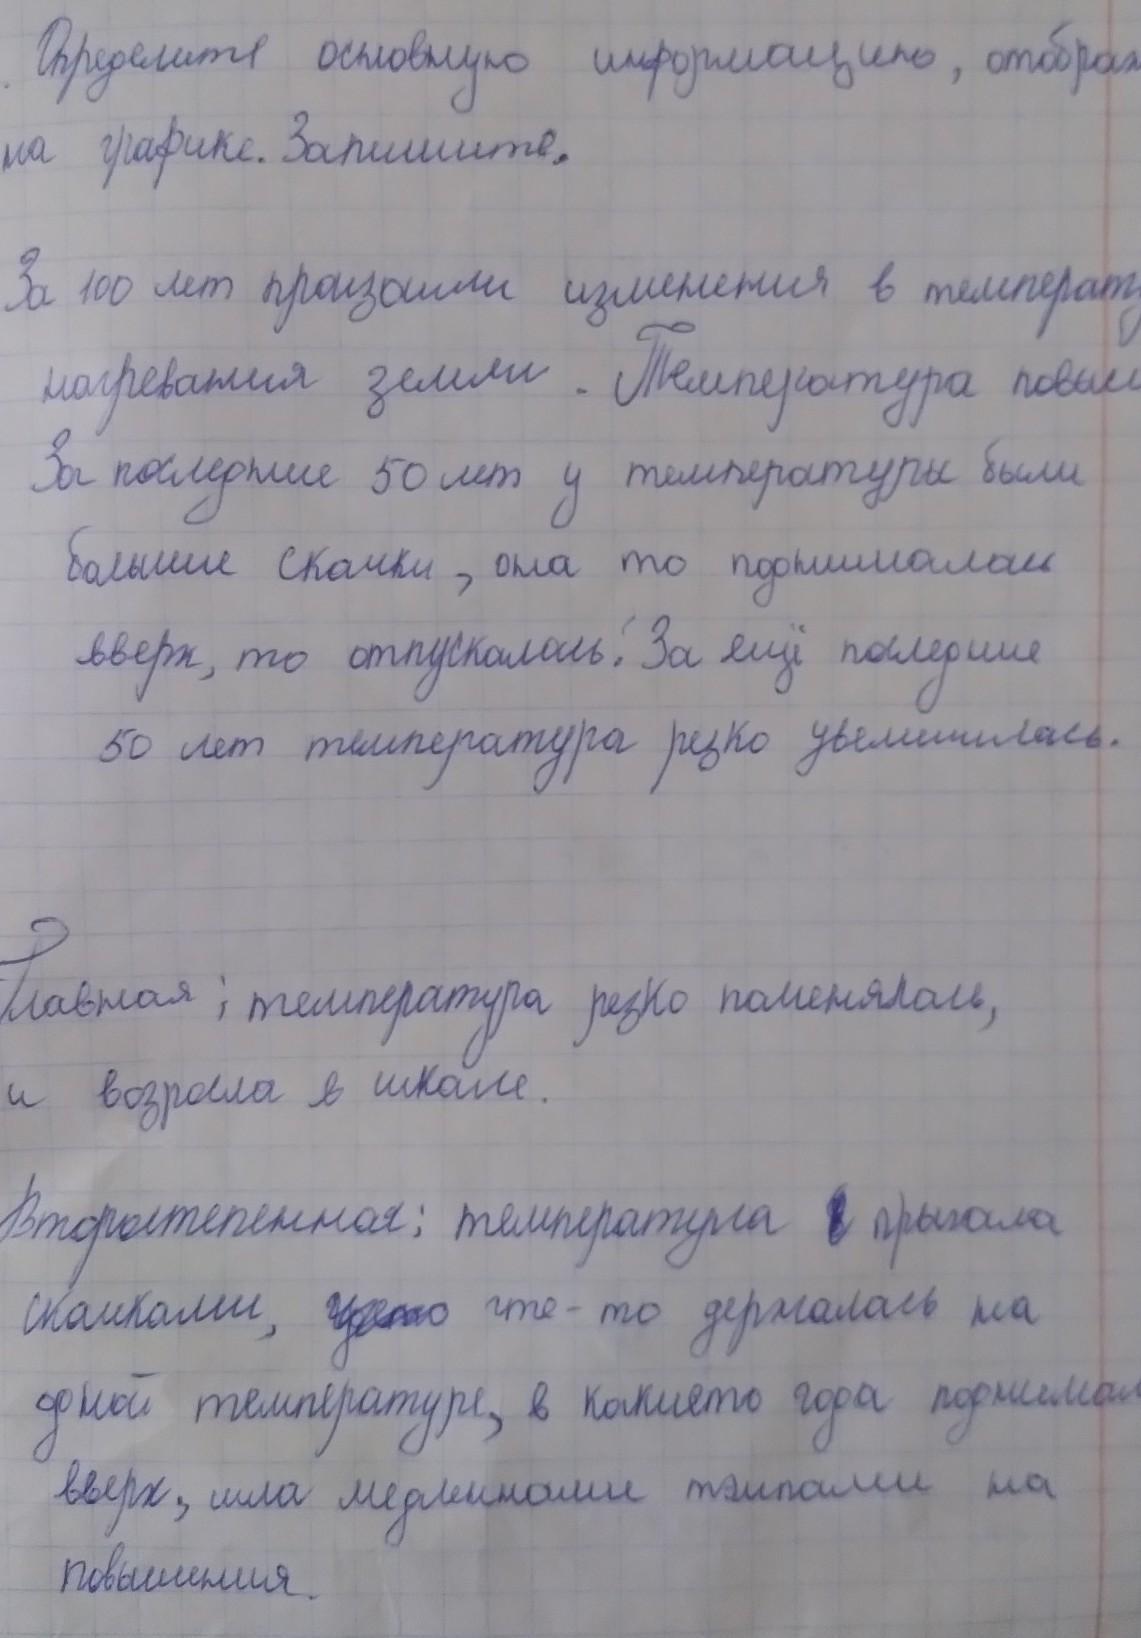 Определите основную информацию, отображ
на графике. Запишите.
За 100 лет произошли изменения в температу
нагревания земли. Температура повыси
За последние 50 лет у температуры были
большие скачки, она то поднималась
вверх, то отпускалась. За ещё последние
50 лет температура резко увеличилась.
Главная; температура резко поменялась,
и возросла в шкале.
Второстепенная: температура прыгала
скачками, где-то держалась на
дной температуре, в какието года поднимал
вверх, шла медлиными типами на
повышения.